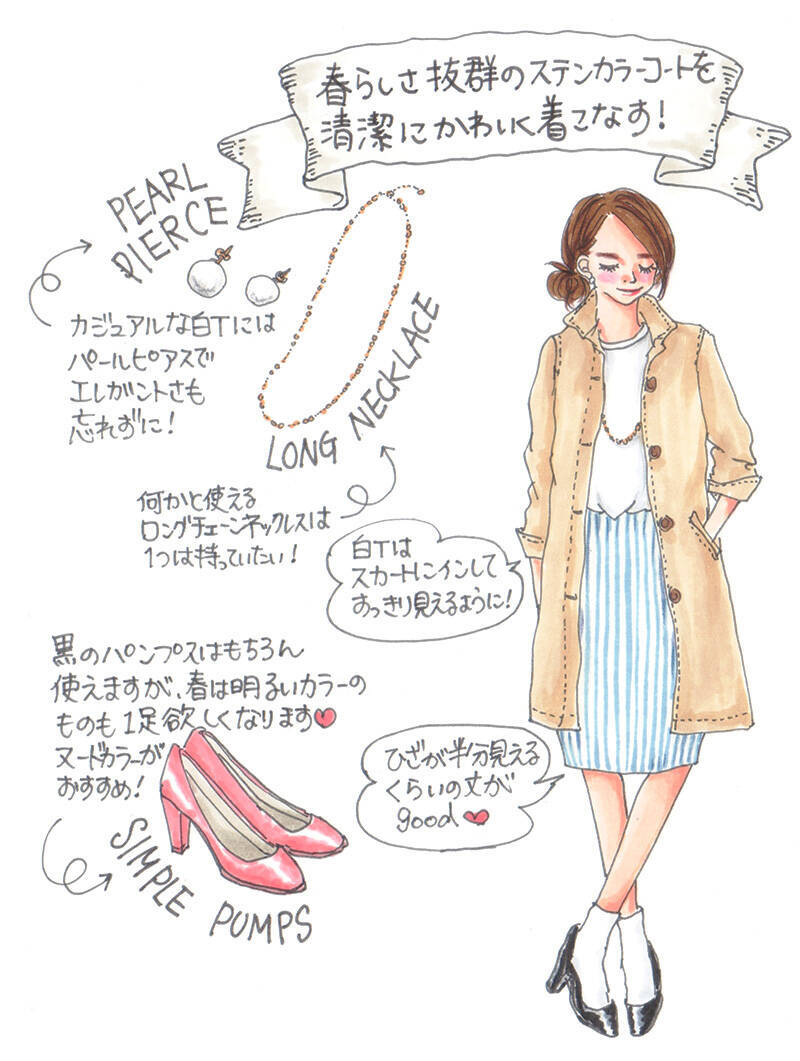 春らしさ抜群のステンカラーコートを
清潔にかわいく着こなす!
PEARL
PIERCE
カジュアルな白Tには
パールピアスで
エレガントさも
忘れずに!
LONG NECKLACE
何かと使える
ロングチェーンネックレスは
1つは持っていたい!
白Tは
スカートにインして
すっきり見えるように!
黒のパンプスはもちろん
使えますが、春は明るいカラーの
ものも1足欲しくなります♥
ヌードカラーが
おすすめ!
SIMPLE PUMPS
ひざが半分見える
くらいの丈が
good♥